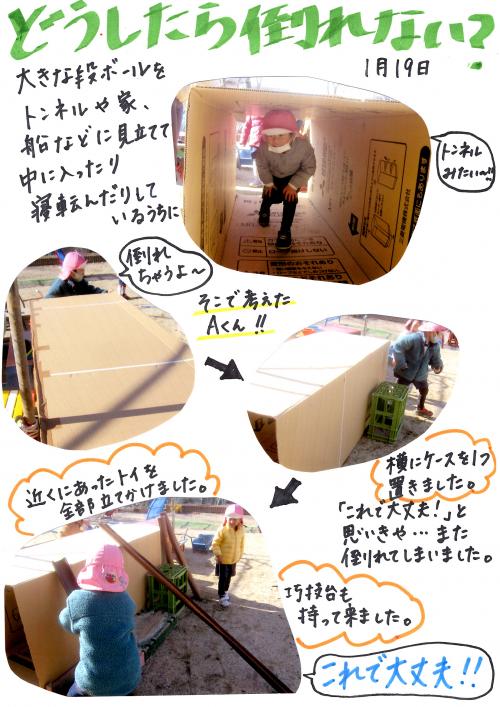 どうしたら倒れない?
1月19日
大きな段ボールを
トンネルや家、
船などに見立てて
中に入ったり
寝転んだりして
いるうちに
トンネル
みたい〜!!
倒れ
ちゃうよ〜
そこで考えた
Aくん!!
横にケースを1つ
置きました。
「これで大丈夫!」と
思いきや…また
倒れてしまいました。
近くにあったトイを
全部立てかけました。
巧技台も
持って来ました。
これで大丈夫!!